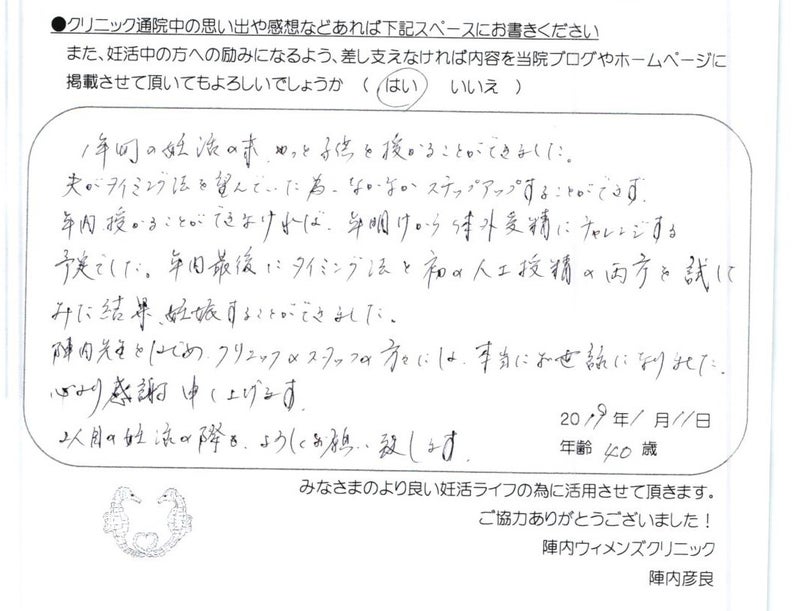 ●クリニック通院中の思い出や感想などあれば下記スペースにお書きください
また、妊活中の方への励みになるよう、差し支えなければ内容を当院ブログやホームページに
掲載させて頂いてもよろしいでしょうか （ はい　いいえ ）
1年間の妊活の末、やっと子供を授かることができました。
夫がタイミング法を望んでいた為、なかなかステップアップすることができず、
年内授かることができなければ、年明けから体外受精にチャレンジする
予定でした。年内最後にタイミング法と初の人工授精の両方を試して
みた結果、妊娠することができました。
陣内先生をはじめ、クリニックのスタッフの方々には、本当にお世話になりました。
心より感謝申し上げます。
2人目の妊活の際も、よろしくお願い致します。
2019年1月11日
年齢 40 歳
みなさまのより良い妊活ライフの為に活用させて頂きます。
ご協力ありがとうございました！
陣内ウィメンズクリニック
陣内彦良